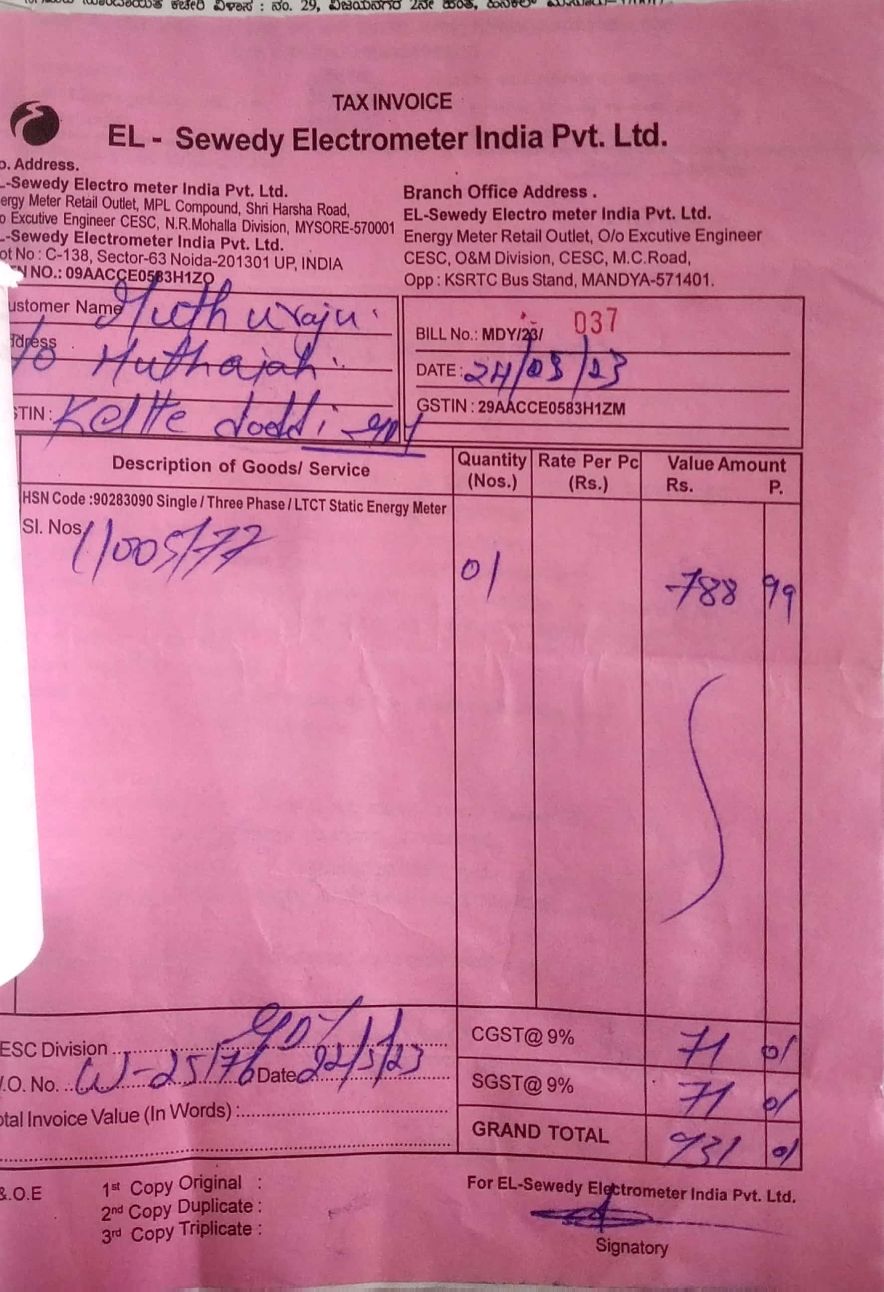 ಕಚೇರಿ ವಿಳಾಸ : ನಂ. 29, ವಿಜಯನಗರ 2ನೇ ಹಂತ,
TAX INVOICE
EL - Sewedy Electrometer India Pvt. Ltd.
o. Address.
L-Sewedy Electro meter India Pvt. Ltd.
ergy Meter Retail Outlet, MPL Compound, Shri Harsha Road,
o Excutive Engineer CESC, N.R.Mohalla Division, MYSORE-570001
L-Sewedy Electrometer India Pvt. Ltd.
ot No : C-138, Sector-63 Noida-201301 UP, INDIA
N NO.: 09AACCE0583H1ZO
Branch Office Address .
EL-Sewedy Electro meter India Pvt. Ltd.
Energy Meter Retail Outlet, O/o Excutive Engineer
CESC, O&M Division, CESC, M.C.Road,
Opp : KSRTC Bus Stand, MANDYA-571401.
ustomer Name Muthuraju
ddress
TIN :
BILL No.: MDY/23/ 037
DATE : 24/03/23
GSTIN : 29AACCE0583H1ZM
Description of Goods/ Service Quantity (Nos.) Rate Per Pc (Rs.) Value Amount Rs. P.
HSN Code :90283090 Single / Three Phase / LTCT Static Energy Meter
Sl. Nos 11005177
01 788 99
ESC Division
.O. No. Date
otal Invoice Value (In Words) :
CGST@ 9% 71 01
SGST@ 9% 71 01
GRAND TOTAL 931 01
&.O.E
1st Copy Original :
2nd Copy Duplicate :
3rd Copy Triplicate :
For EL-Sewedy Electrometer India Pvt. Ltd.
Signatory